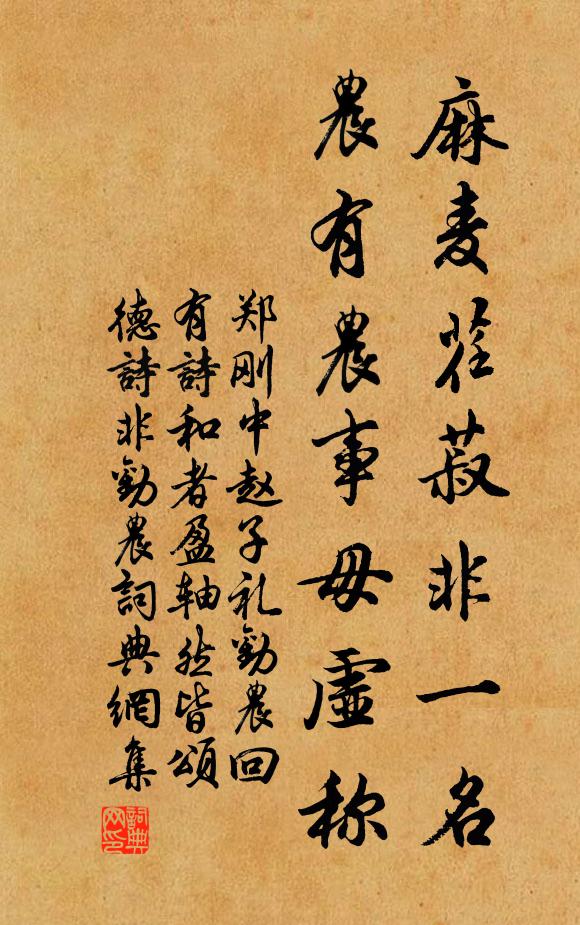 麻麦荏菽非一名
農有農事毋虚称
郑刚中赵子礼勸農回
有詩和者盈轴然皆頌
德詩非勸農詞典網集
詞典网印